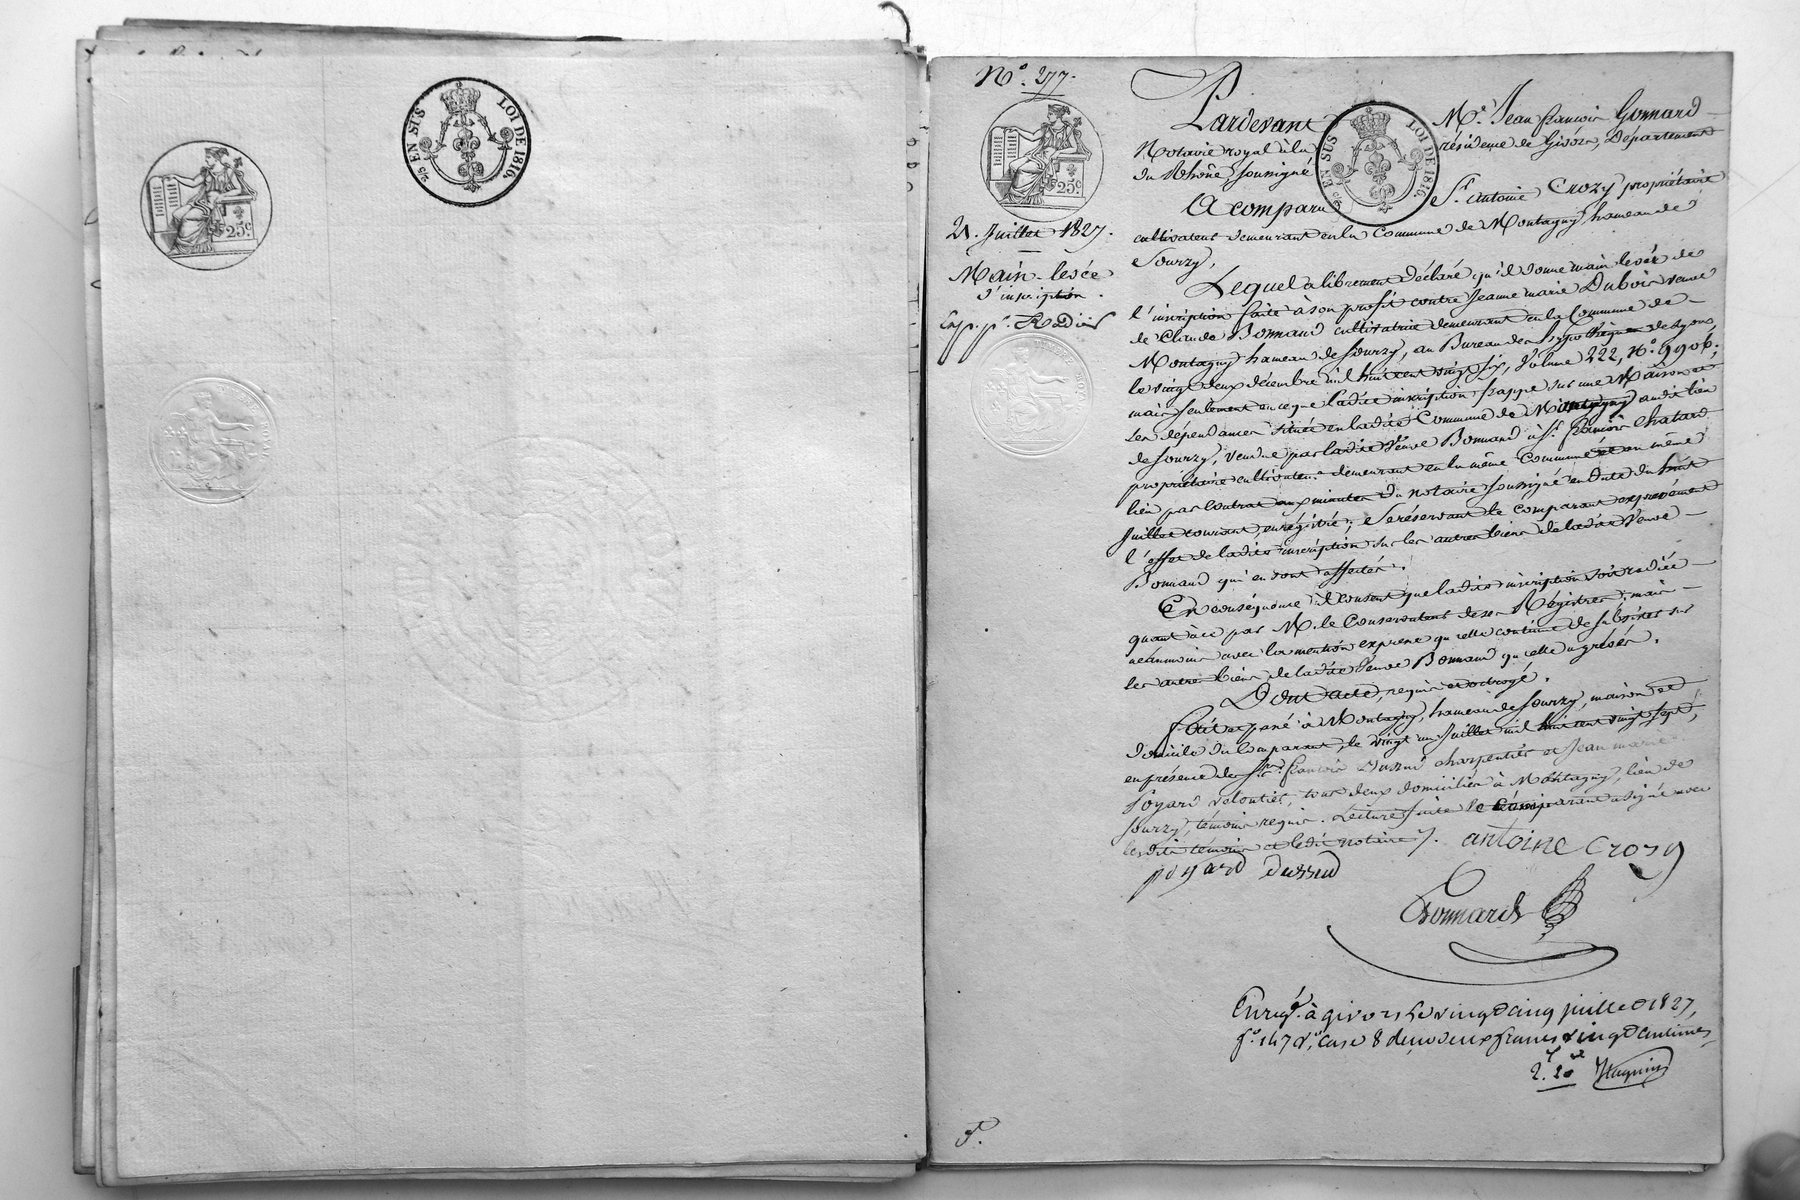 2/5 EN SUS
LOI DE 1816.
25c
TIMBRE ROYAL
N.o 277.
25c
2/5 EN SUS
LOI DE 1816.
21. Juillet 1827.
Main-levée
d'inscription.
Exp. p.r Radier
TIMBRE ROYAL
Pardevant M.e Jean françois Gonnard
Notaire royal à la résidence de Givors, Département
du Rhône soussigné
A comparu S.r antoine Crozy propriétaire
cultivateur demeurant en la Commune de Montagny hameau de
Sourzy,
Lequel a librement déclaré qu'il donne main levée de
l'inscription faite à son profit contre Jeanne marie Dubois veuve
de Claude Bonnand cultivatrice demeurant en la Commune de
Montagny hameau de Sourzy, au Bureau des hypothèques de Lyon,
le vingt deux décembre mil huit cent vingt six, Volume 222, N.o 9906,
mais seulement en ce que ladite inscription frappe sur une Maison et
ses dépendances située en ladite Commune de Montagny audit lieu
de Sourzy, vendue par ladite Veuve Bonnand à S.r françois Chatard
propriétaire cultivateur demeurant en la même Commune et au même
lieu par Contrat aux minutes du notaire soussigné en date du huit
Juillet courant, enregistré; se réservant le comparant expressément
l'effet de ladite inscription sur les autres biens de ladite Veuve
Bonnand qui en sont affectés.
En conséquence il consent que ladite inscription soit radiée
quant à ce par M. le Conservateur de ses Régistres; mais
néanmoins avec la mention expresse qu'elle continue de subsister sur
les autres biens de ladite Veuve Bonnand qu'elle a grevés.
Dont acte, requis et octroyé.
fait et passé à Montagny, hameau de Sourzy, maison et
domicile du Comparant, le vingt un Juillet mil huit cent vingt sept,
en présence de S.rs françois Dussud charpentier et Jean marie
Poyard veloutier, tous deux domiciliés à Montagny, lieu de
Sourzy, témoins requis. Lecture faite le Comparant a signé avec
lesdits témoins et ledit notaire /.
antoine crozy
poyard Dussud
Gonnard
Enreg.é à givors le vingt cinq juillet 1827,
f.o 147 v.o case 8 reçu deux francs vingt centimes
2.f 20c